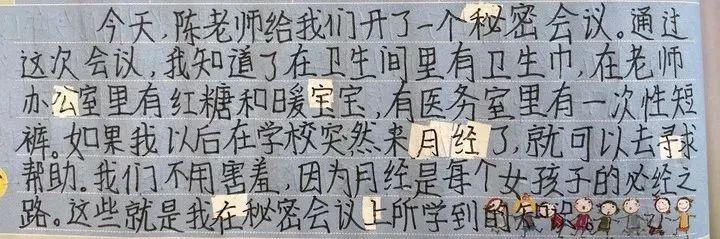 今天,陈老师给我们开了一个秘密会议。通过
这次会议,我知道了在卫生间里有卫生巾,在老师
办公室里有红糖和暖宝宝,有医务室里有一次性短
裤。如果我以后在学校突然来月经了,就可以去寻求
帮助。我们不用害羞,因为月经是每个女孩子的必经之
路。这些就是我在秘密会议上所学到的知识。